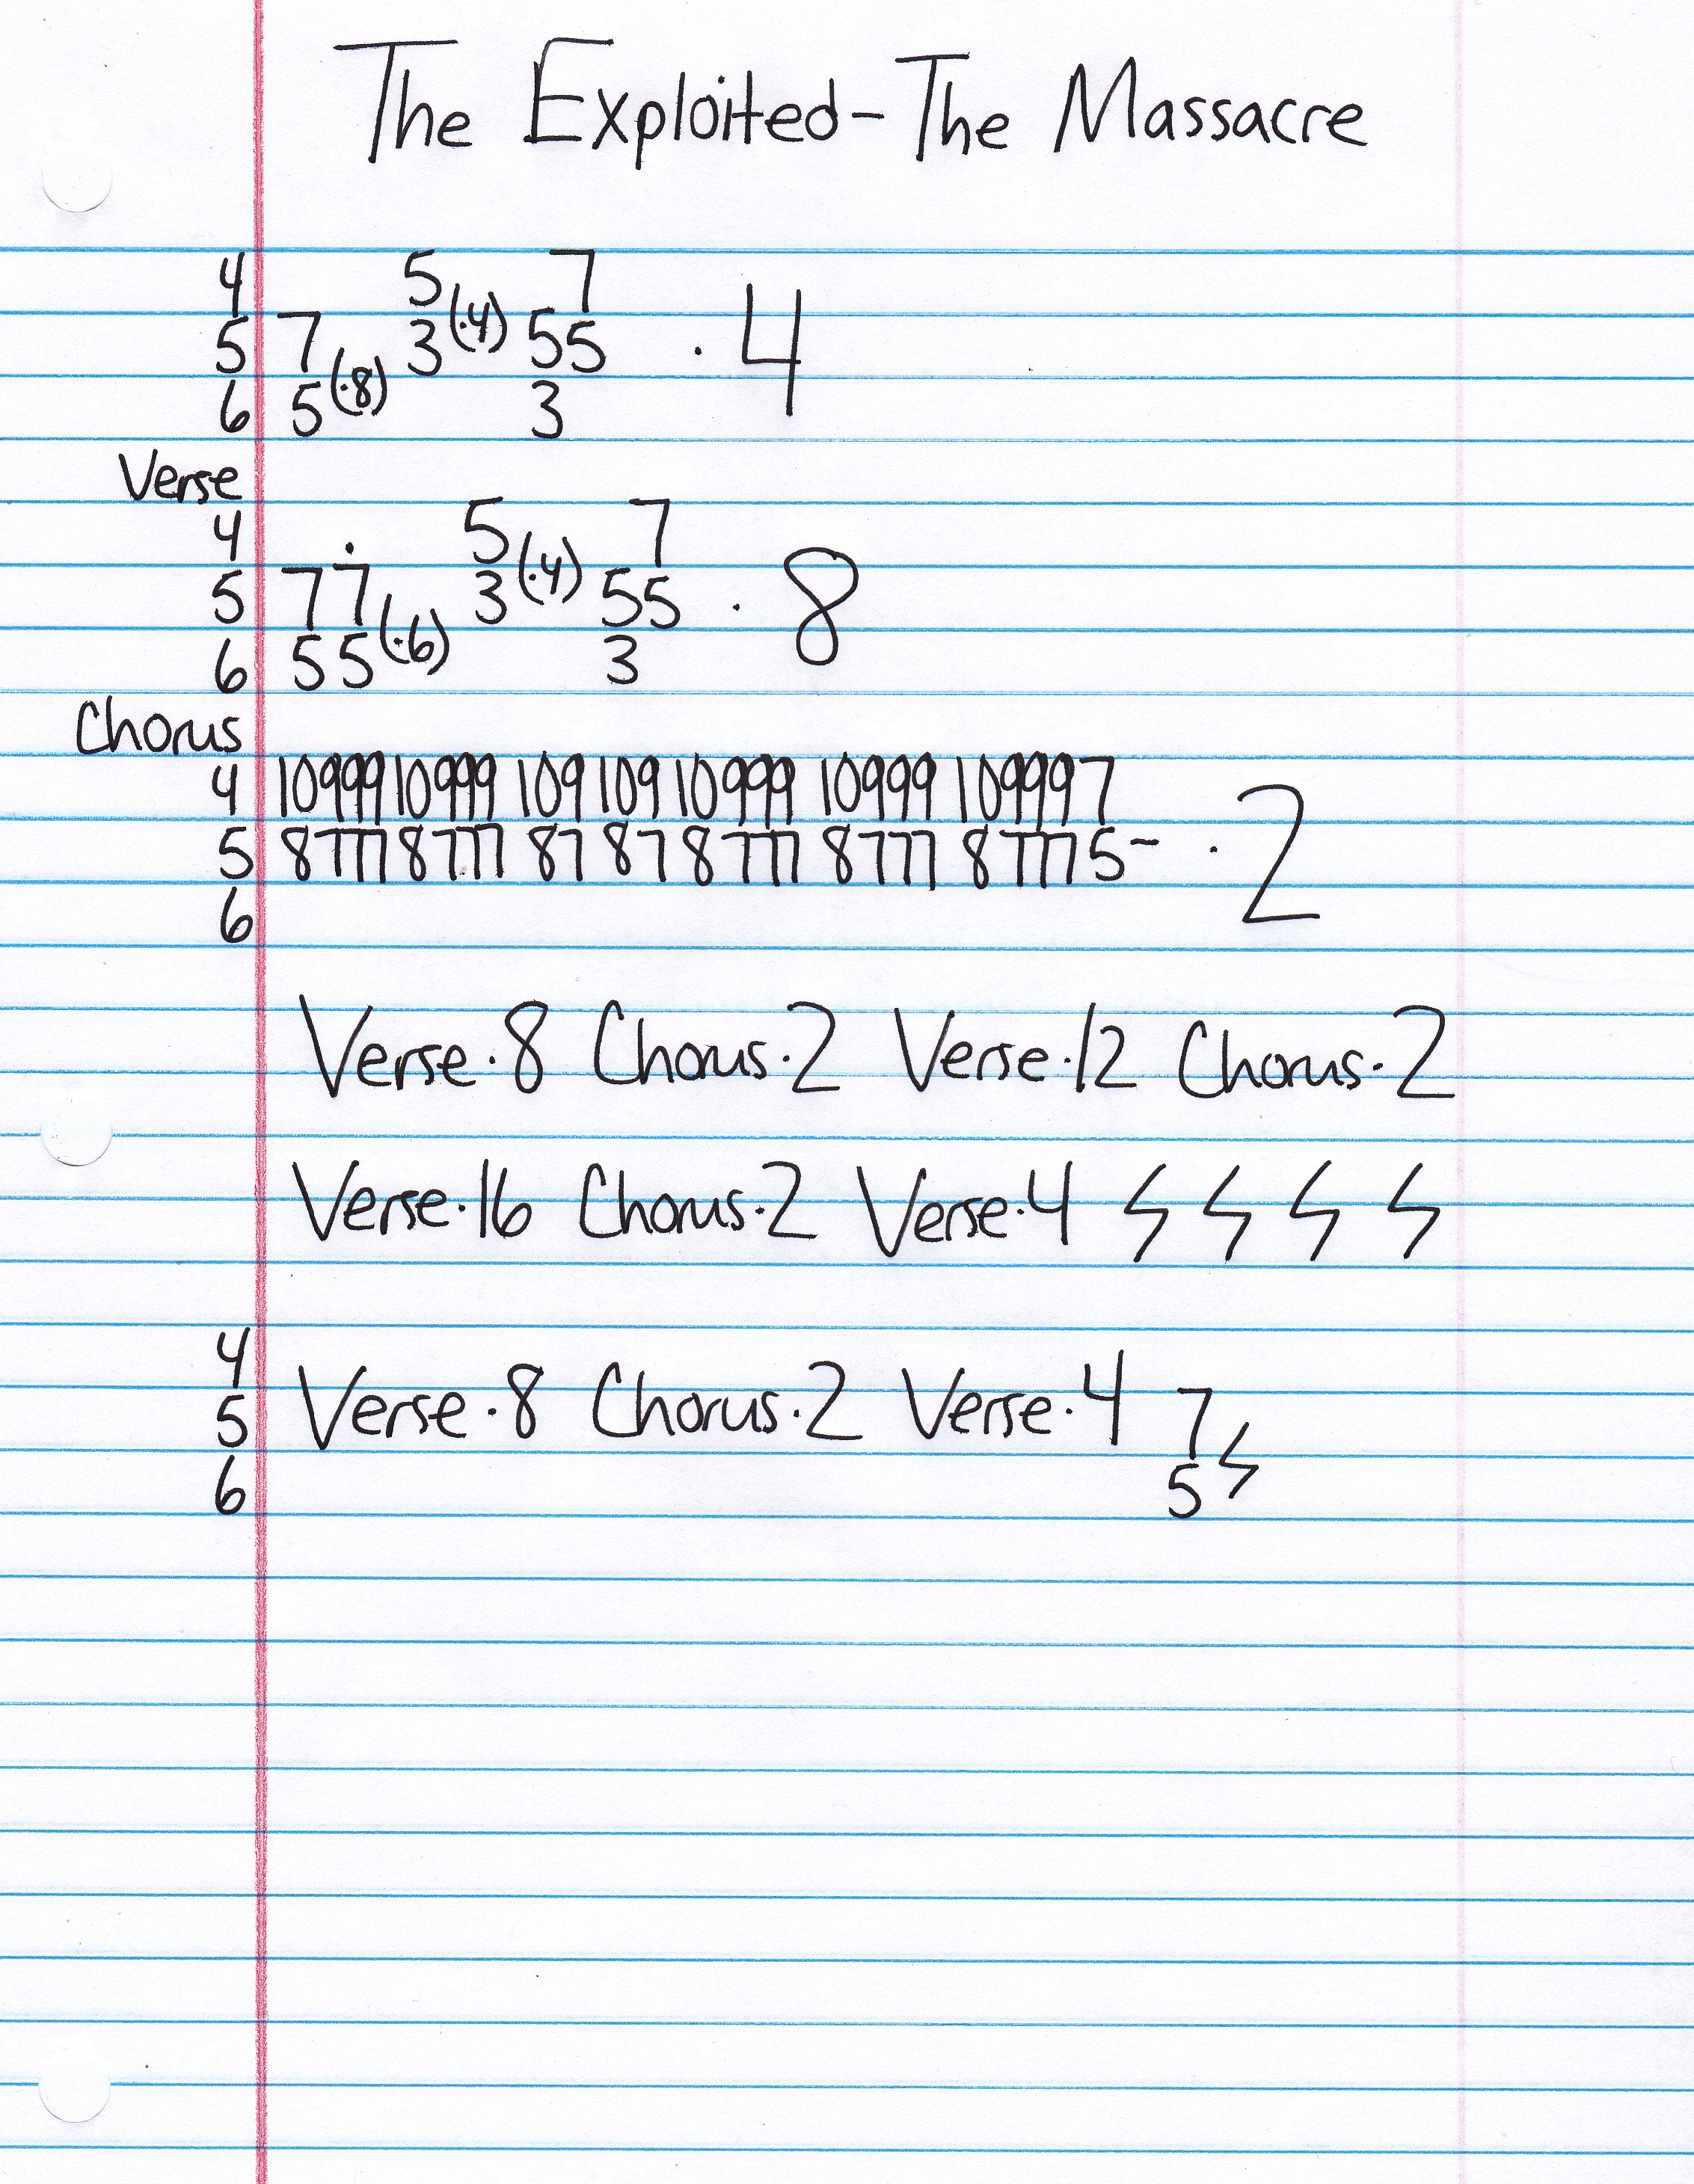 The Exploited-The Massacre
4 5 7
5 7 3 (·4) 55 · 4
6 5 (·8) 3
Verse
4 5 7
5 77 3 (·4) 55 · 8
6 55 (·6) 3
Chorus
4 10999 10999 109 109 10999 10999 109997
5 8777 8777 87 87 8777 8777 87775- · 2
6
Verse·8 Chorus·2 Verse·12 Chorus·2
Verse·16 Chorus·2 Verse·4 ϟ ϟ ϟ ϟ
4
5 Verse·8 Chorus·2 Verse·4 7 ϟ
6 5